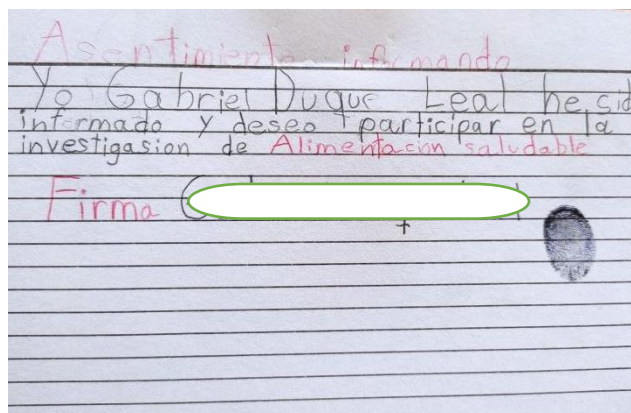 Asentimiento informando
Yo Gabriel Duque Leal he sid
informado y deseo participar en la
investigasion de Alimentación saludable
Firma